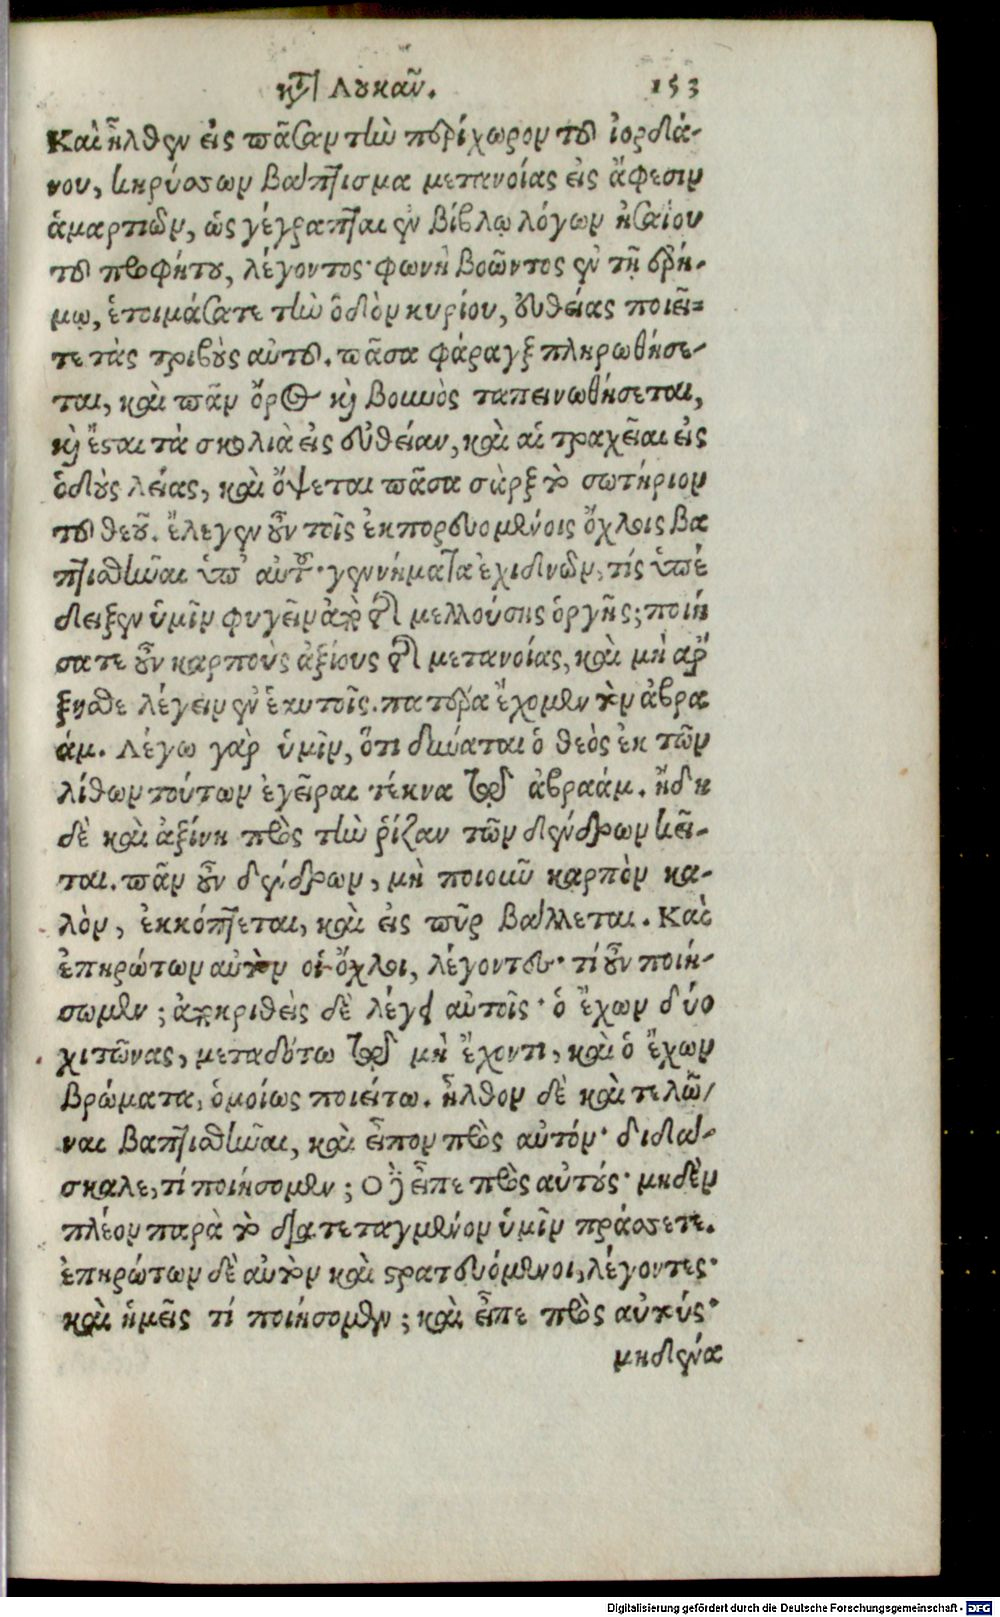 κτ͂ Λουκᾶν. 153
Καὶ ἦλθεν εἰς πᾶσαν τὴν περίχωρον τοῦ ἰορδά-
νου, κηρύσσων βάπτισμα μετανοίας εἰς ἄφεσιν
ἁμαρτιῶν, ὡς γέγραπται ἐν βίβλῳ λόγων ἡσαΐου
τοῦ προφήτου, λέγοντος· φωνὴ βοῶντος ἐν τῇ ἐρή-
μῳ, ἑτοιμάσατε τὴν ὁδὸν κυρίου, εὐθείας ποιεῖ-
τε τὰς τρίβους αὐτοῦ. πᾶσα φάραγξ πληρωθήσε-
ται, καὶ πᾶν ὄρος καὶ βουνὸς ταπεινωθήσεται,
καὶ ἔσται τὰ σκολιὰ εἰς εὐθείαν, καὶ αἱ τραχεῖαι εἰς
ὁδοὺς λείας, καὶ ὄψεται πᾶσα σὰρξ τὸ σωτήριον
τοῦ θεοῦ. ἔλεγεν οὖν τοῖς ἐκπορευομένοις ὄχλοις βα
πτισθῆναι ὑπ' αὐτοῦ· γεννήματα ἐχιδνῶν, τίς ὑπέ
δειξεν ὑμῖν φυγεῖν ἀπὸ τῆς μελλούσης ὀργῆς; ποιή
σατε οὖν καρποὺς ἀξίους τῆς μετανοίας, καὶ μὴ ἄρ
ξησθε λέγειν ἐν ἑαυτοῖς. πατέρα ἔχομεν τὸν ἀβρα
άμ. Λέγω γὰρ ὑμῖν, ὅτι δύναται ὁ θεὸς ἐκ τῶν
λίθων τούτων ἐγεῖραι τέκνα τῷ ἀβραάμ. ἤδη
δὲ καὶ ἀξίνη πρὸς τὴν ῥίζαν τῶν δένδρων κεῖ-
ται. πᾶν οὖν δένδρων, μὴ ποιοῦν καρπὸν κα-
λὸν, ἐκκόπτεται, καὶ εἰς πῦρ βάλλεται. Καὶ
ἐπηρώτων αὐτὸν οἱ ὄχλοι, λέγοντες· τί οὖν ποιή-
σωμεν; ἀποκριθεὶς δὲ λέγει αὐτοῖς· ὁ ἔχων δύο
χιτῶνας, μεταδότω τῷ μὴ ἔχοντι, καὶ ὁ ἔχων
βρώματα, ὁμοίως ποιείτω. ἦλθον δὲ καὶ τελῶ/
ναι βαπτισθῆναι, καὶ εἶπον πρὸς αὐτόν· διδά-
σκαλε, τί ποιήσομεν; Ο δὲ εἶπε πρὸς αὐτούς· μηδὲν
πλέον παρὰ τὸ διατεταγμένον ὑμῖν πράσσετε.
ἐπηρώτων δὲ αὐτὸν καὶ στρατευόμενοι, λέγοντες·
καὶ ἡμεῖς τί ποιήσομεν; καὶ εἶπε πρὸς αὐτούς·
μηδένα
Digitalisierung gefördert durch die Deutsche Forschungsgemeinschaft - DFG